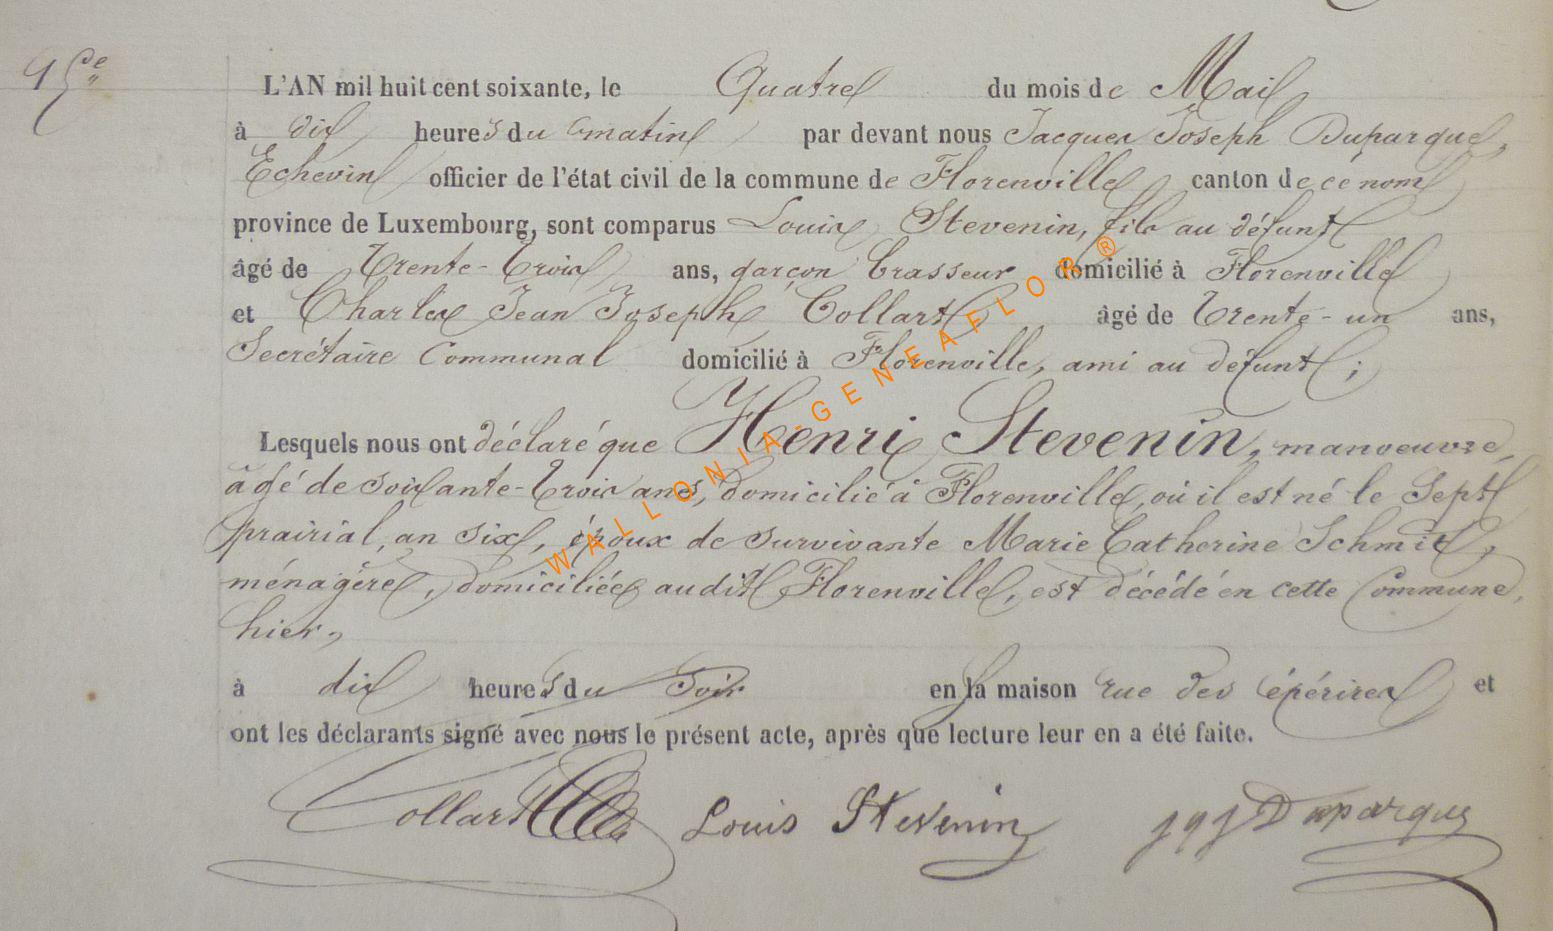 L'AN mil huit cent soixante, le Quatre du mois de Mai
à dix heures du matin par devant nous Jacques Joseph Duparque,
Echevin officier de l'état civil de la commune de Florenville canton de ce nom
province de Luxembourg, sont comparus Louis Stevenin, fils au défunt
âgé de trente-trois ans, garçon brasseur domicilié à Florenville
et Charles Jean Joseph Collart âgé de trente-un ans,
Secrétaire Communal domicilié à Florenville, ami au défunt;
Lesquels nous ont déclaré que Henri Stevenin, manoeuvre,
âgé de soixante-trois ans, domicilié à Florenville, où il est né le Sept
prairial, an six, époux de survivante Marie Catherine Schmit,
ménagère, domiciliée audit Florenville, est décédé en cette Commune,
hier,
à dix heures du Soir en la maison rue des épérires et
ont les déclarants signé avec nous le présent acte, après que lecture leur en a été faite.
Collart Louis Stevenin JqJ Duparque
WALLONIA-GENEAFLOR®